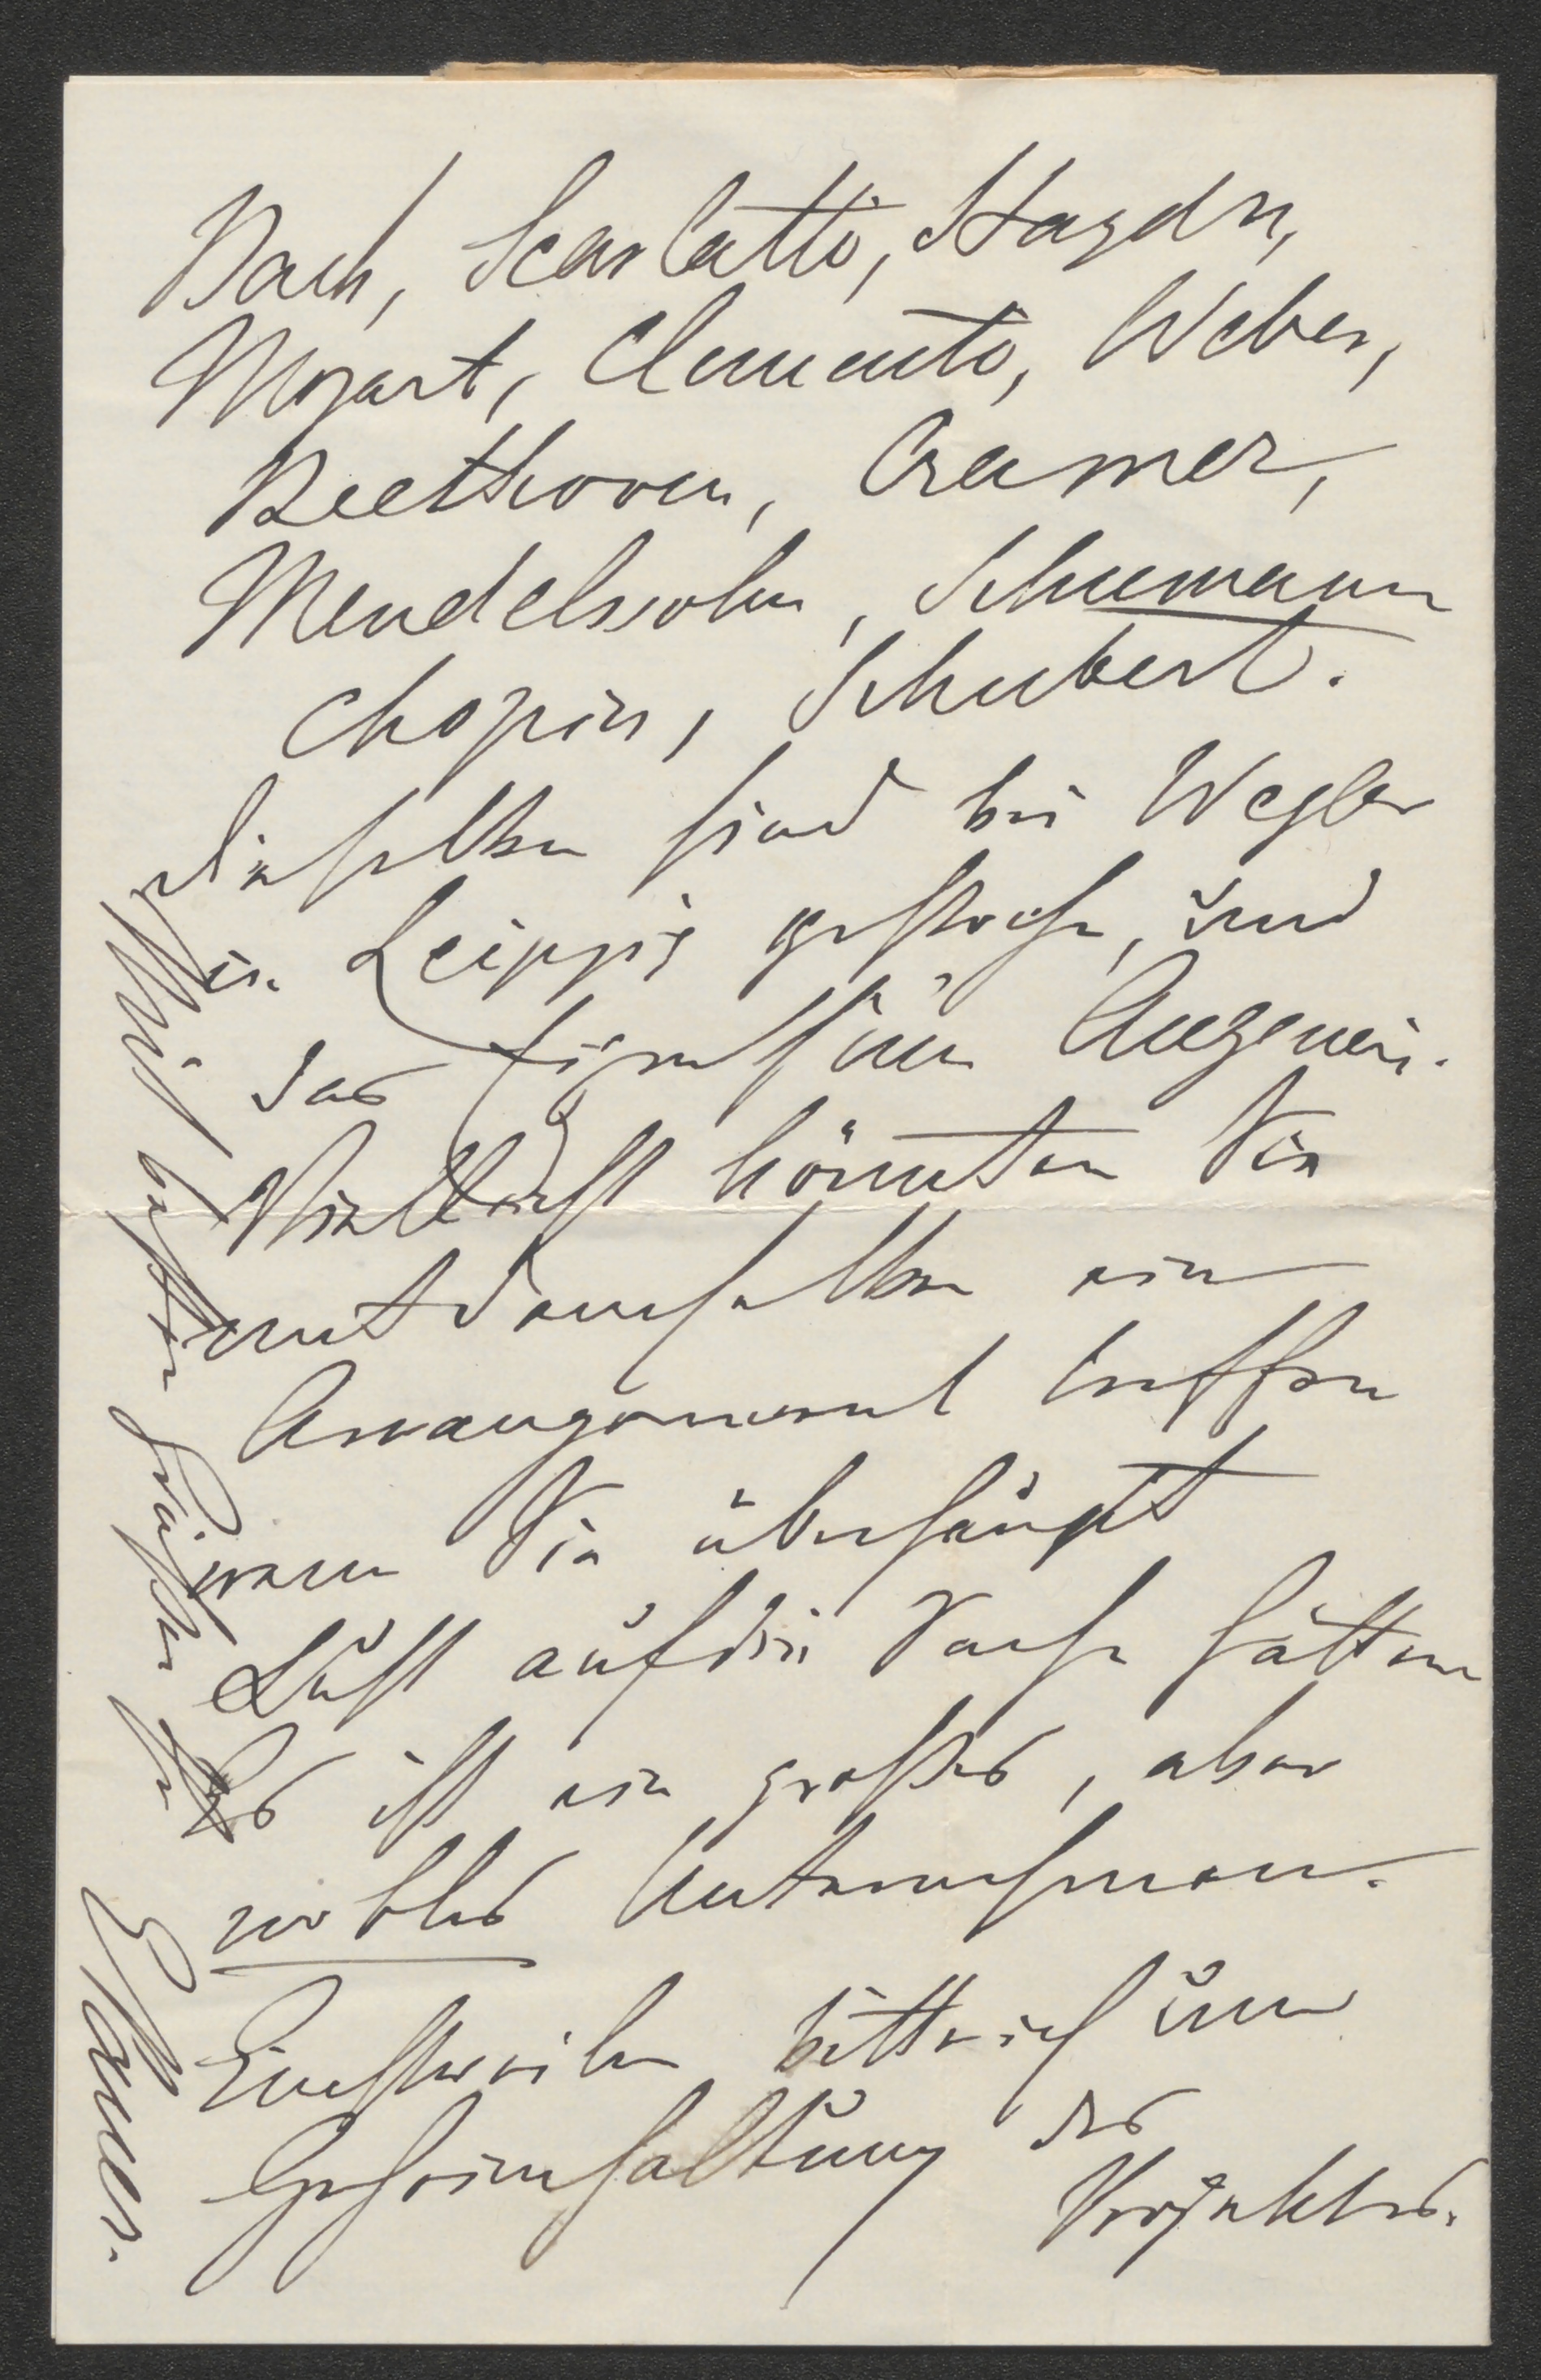 Bach, Scarlatti, Haydn,
Mozart, Clementi, Weber,
Beethoven, Cramer,
Mendelssohn, Schumann
Chopin, Schubert.
Dieselben sind bei Wegler
in Leipzig gestochen, und
das sein Augenei.
Vielleicht könnten Sie
mit demselben ein
Arrangement treffen
wenn Sie überhaupt
Lust auf die Sache hätten
Es ist ein großes, aber
nobles Unternehmen.
Einstweilen bitte ich um
Geheimhaltung des
Projektes.
Mit besten Grüßen Ihr
EHauer.